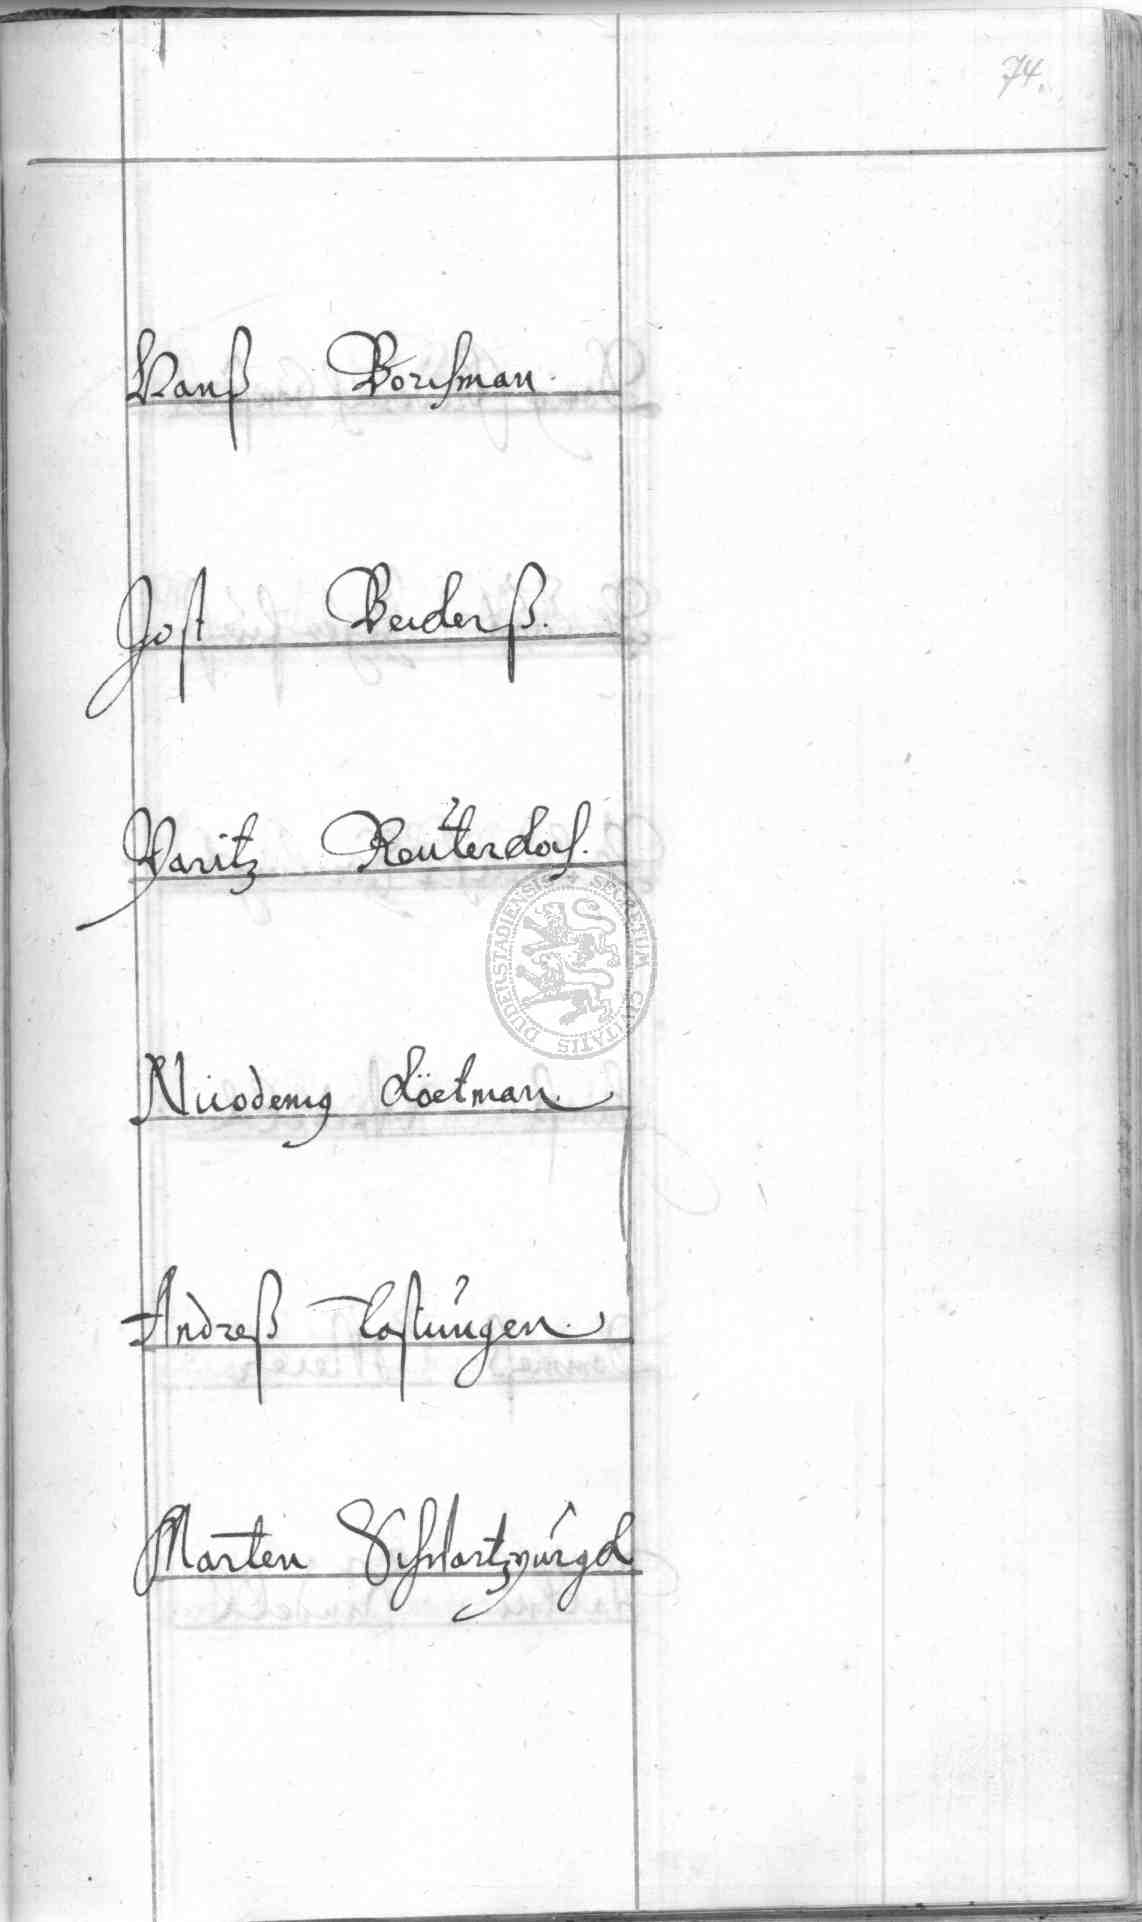 74.
Hanß Borchman.
Jost Beiderß.
Moritz Reuterdorf.
DUDERSTADIENSIS * SECRETUM CIVITATIS
Nicodemus Löetman.
Andreß Tastungen.
Marten Schwartz